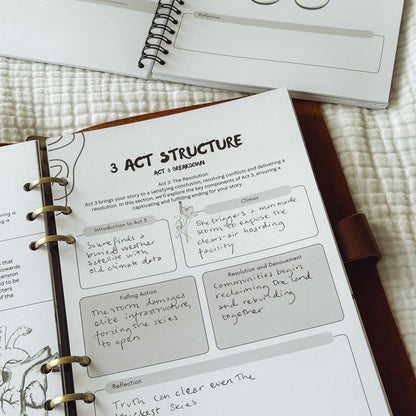 Reflection
3 ACT STRUCTURE
ACT 3 BREAKDOWN
Act 3: The Resolution.
Act 3 brings your story to a satisfying conclusion, resolving conflicts and delivering a
resolution. In this section, we'll explore the key components of Act 3, ensuring a
captivating and fulfilling ending for your story.
Introduction to Act 3
finds a
buried weather
satellite with
old climate data
Climax
She triggers a man-made
storm to expose the
clean-air hoarding
facility
Falling Action
The storm damages
elite infrastructure,
forcing the skies
to open
Resolution and Denouement
Communities begin
reclaiming the land
and rebuilding
together
Reflection
Truth can clear even the
skies
that
towards
ended
to be
of the